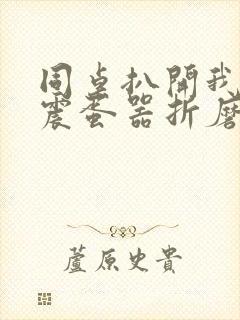 同桌扒開我
震蛋器折磨
蘆原史貴